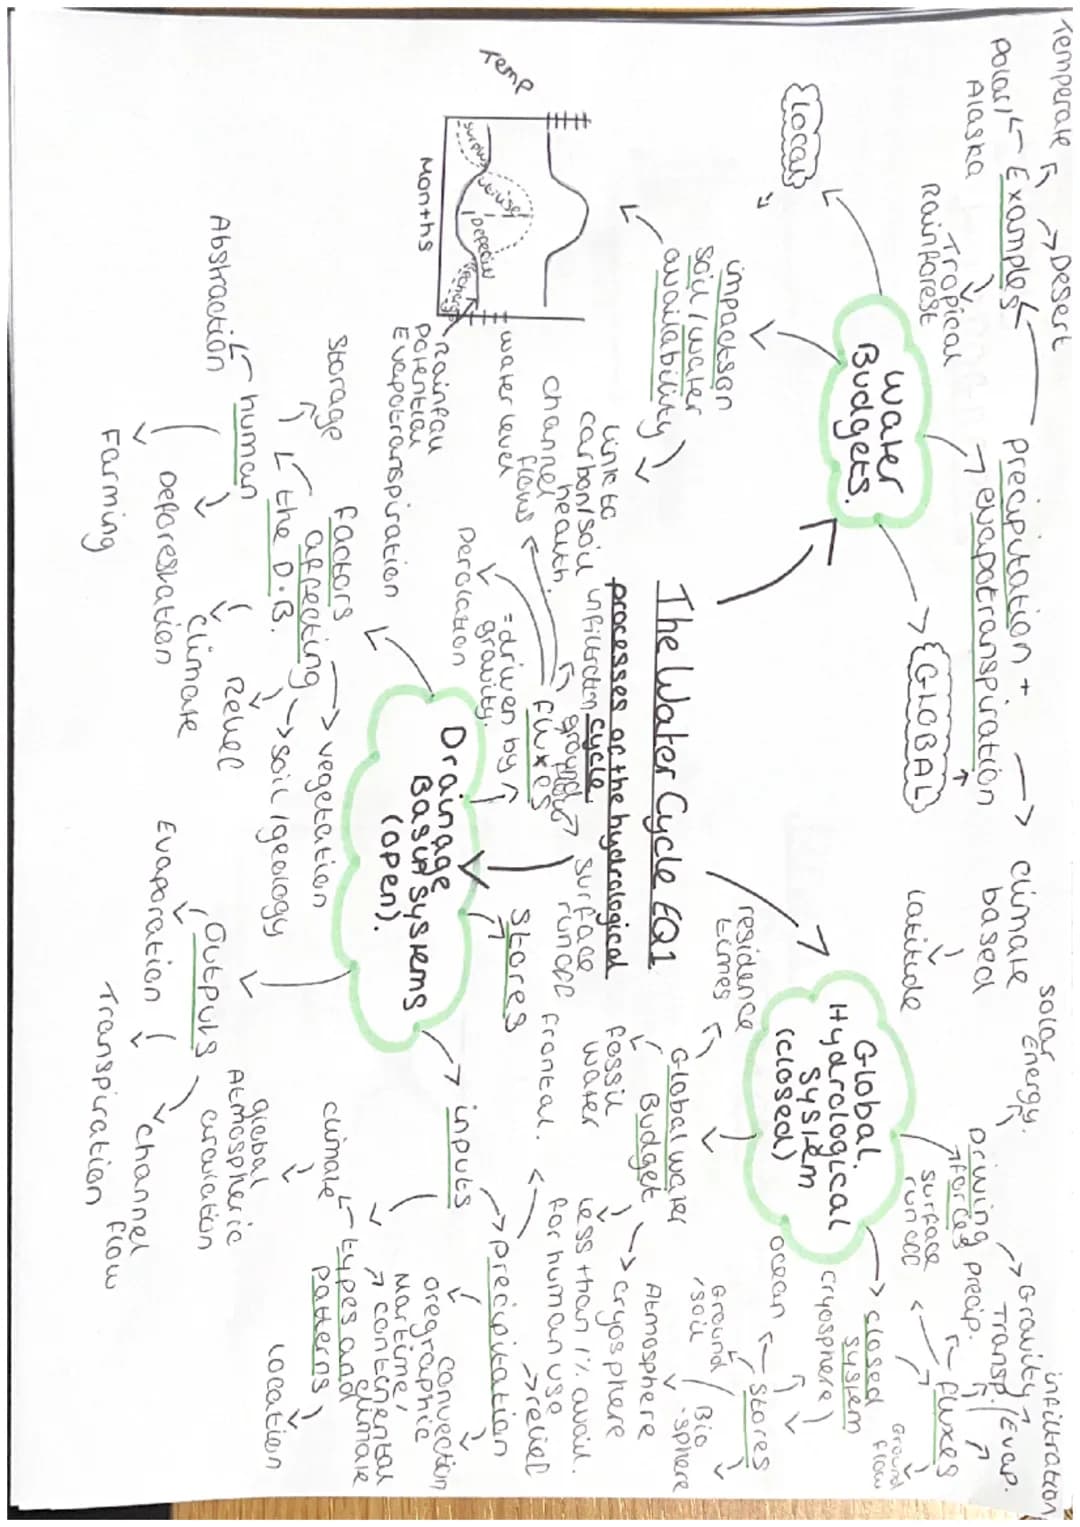 The Water Cycle EQ1
processes of the hydrological
cycle.
Water
Budgets.
LOCAL
GLOBAL
precipitation +
evapotranspiration
Examples
Temperate
Desert
Polar/
Alaska
Tropical
Rainforest
climate
based
latitude
impacts on
soil/water
availability
link to
carbon/soil
health.
Temp
surplus
Deficit
Months
water level
Rainfall
Potential
Evapotranspiration
Global
Hydrological
System
(closed)
Driving
forces
solar
Energy.
Gravity
closed
system
fluxes
infiltration
Transp./Evap.
precip.
surface
runoff
Ground
flow
Stores
cryosphere
ocean
Ground
/soil
Bio
-sphere
Atmosphere
residence
times
Global water
Budget
fossil
water
cryosphere
less than 1% avail.
for human use
Drainage
Basin systems
(open).
fluxes
= driven by
gravity.
channel
flows
infiltration
percolation
surface
runoff
Stores
inputs
precipitation
frontal.
relief
oregraphic
convection
types and
patterns
climate
Martime/
continental
climate
location
global
Atmospheric
circulation
Outputs
Evaporation
Transpiration
channel
flow
factors
affecting
the D.B.
vegetation
soil/geology
Relief
climate
Storage
human
Abstraction
Deforestation
Farming